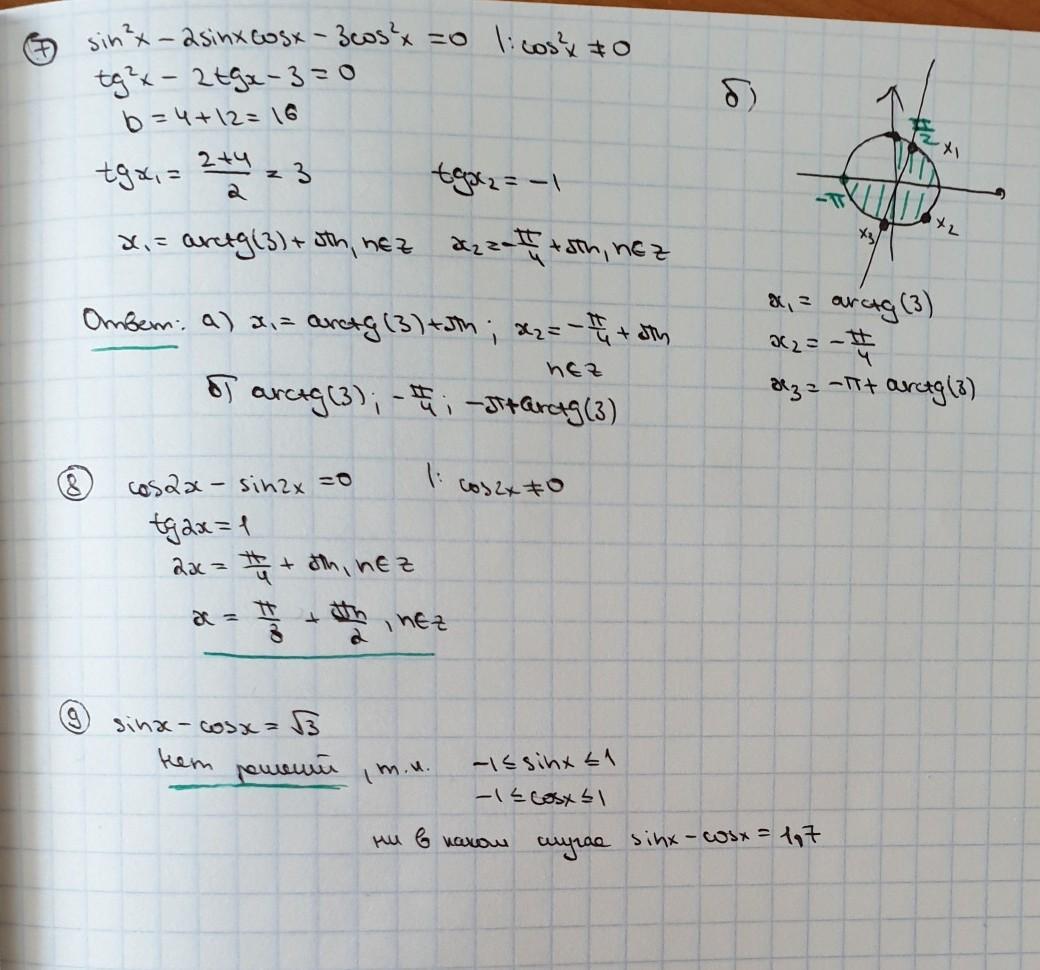 7 sin²x - 2sinxcosx - 3cos²x = 0 |: cos²x ≠ 0
tg²x - 2tgx - 3 = 0
D = 4 + 12 = 16
tgx₁ = (2+4)/2 = 3 tgx₂ = -1
x₁ = arctg(3) + πn, n∈z x₂ = -π/4 + πn, n∈z
б)
π/2
x₁
-π
x₃
x₂
x₁ = arctg(3)
x₂ = -π/4
x₃ = -π + arctg(3)
Ответ: а) x₁ = arctg(3) + πn; x₂ = -π/4 + πn
n∈z
б) arctg(3); -π/4; -π+arctg(3)
8 cos2x - sin2x = 0 |: cos2x ≠ 0
tg2x = 1
2x = π/4 + πn, n∈z
x = π/8 + πn/2, n∈z
9 sinx - cosx = √3
нет решений, т.к. -1 ≤ sinx ≤ 1
-1 ≤ cosx ≤ 1
ни в каком случае sinx - cosx = 1,7